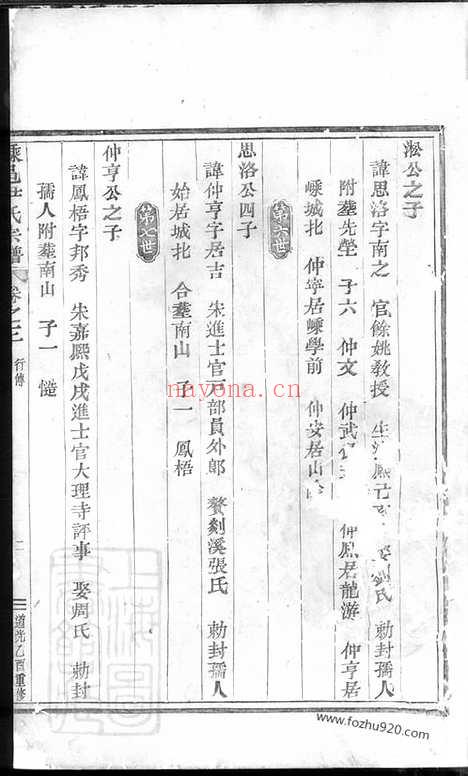 淞公之子
諱思洛字南之 官餘姚教授 氏 勅封孺人
附塟先塋 子六 仲文 仲武 仲鳳居龍游 仲亨居
嵊城北 仲寜居嵊學前 仲安居山
第六世
思洛公四子
諱仲亨字居吉 宋進士官戸部員外郎 贅剡溪張氏 勅封孺人
始居城北 合塟南山 子一 鳳梧
第七世
仲亨公之子
諱鳳梧字邦秀 宋嘉熙戊戌進士官大理寺評事 娶周氏 勅封
孺人附塟南山 子一
氏宗譜 卷之 行傳
二
道光乙酉重修
nayona.cn
www.fozhu920.com